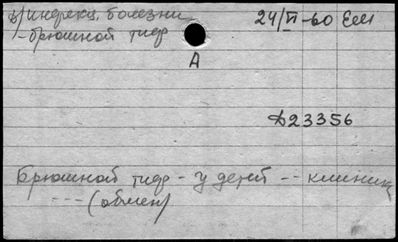 в) инфекц. болезни
- брюшной тиф
24/VI-60
А
D23356
Брюшной тиф - у детей -- клиника
--- (обмен)